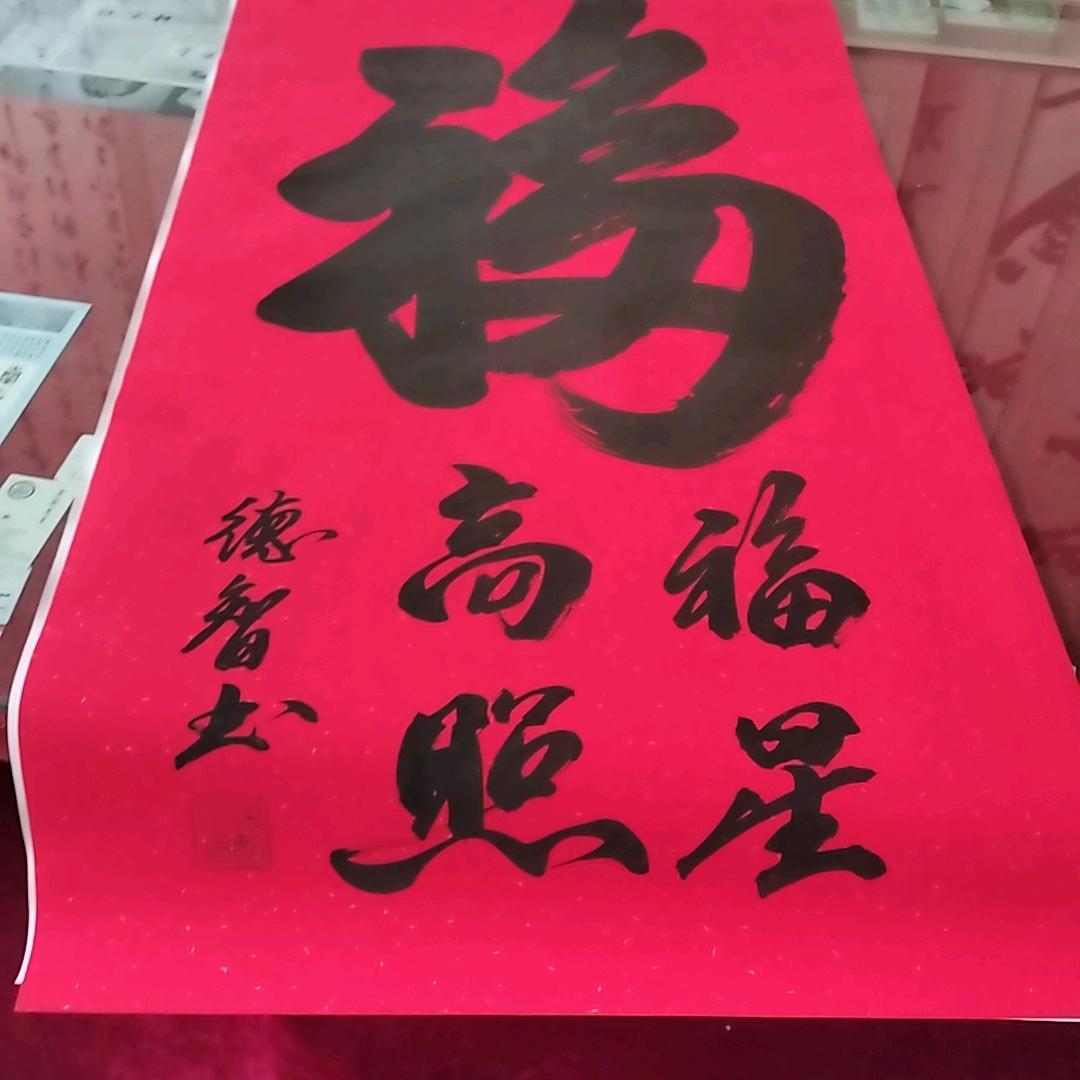 福
福星
高照
德智书